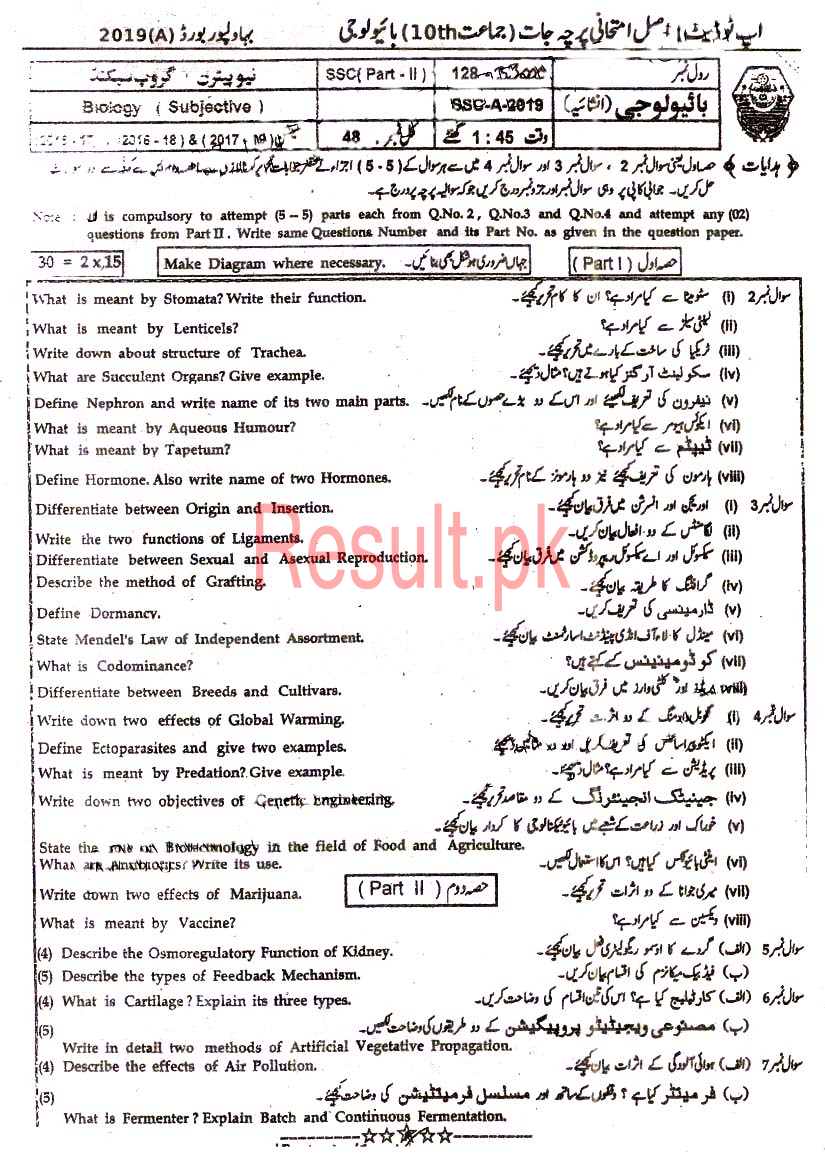 اپ ٹوڈیٹ اصل امتحانی پرچہ جات (جماعت 10th) بائیولوجی بہاولپور بورڈ 2019(A)
رول نمبر SSC(Part - II) نیو پیٹرن گروپ سیکنڈ
بائیولوجی (انشائیہ) SSC-A-2019 Biology ( Subjective )
وقت 1:45 گھنٹے کل نمبر 48
﴿ ہدایات ﴾ حصہ اول یعنی سوال نمبر 2 ، سوال نمبر 3 اور سوال نمبر 4 میں سے ہر سوال کے (5 - 5) اجزاء کے
حل کریں۔ جوابی کاپی پر وہی سوال نمبر اور جزو نمبر درج کریں جو کہ سوالیہ پرچہ پر درج ہے۔
Note : is compulsory to attempt (5 – 5) parts each from Q.No.2 , Q.No.3 and Q.No.4 and attempt any (02)
questions from Part II . Write same Questions Number and its Part No. as given in the question paper.
30 = 2 x 15 Make Diagram where necessary. جہاں ضروری ہو شکل بھی بنائیں۔ حصہ اول ( Part I )
What is meant by Stomata? Write their function. سوال نمبر 2 (i) سٹومیٹا سے کیا مراد ہے؟ ان کا کام تحریر کیجئے۔
What is meant by Lenticels? (ii) لینٹی سیلز سے کیا مراد ہے؟
Write down about structure of Trachea. (iii) ٹریکیا کی ساخت کے بارے میں تحریر کیجئے۔
What are Succulent Organs? Give example. (iv) سکولینٹ آرگنز کیا ہوتے ہیں؟ مثال دیجئے۔
Define Nephron and write name of its two main parts. (v) نیفرون کی تعریف کیجئے اور اس کے دو بڑے حصوں کے نام لکھیں۔
What is meant by Aqueous Humour? (vi) ایکوس ہیومر سے کیا مراد ہے؟
What is meant by Tapetum? (vii) ٹیپٹم سے کیا مراد ہے؟
Define Hormone. Also write name of two Hormones. (viii) ہارمون کی تعریف کیجئے نیز دو ہارمونز کے نام تحریر کیجئے۔
Differentiate between Origin and Insertion. سوال نمبر 3 (i) اوریجن اور انسرشن میں فرق بیان کیجئے۔
Write the two functions of Ligaments. (ii) لگامنٹس کے دو افعال بیان کریں۔
Differentiate between Sexual and Asexual Reproduction. (iii) سیکسوئل اور اے سیکسوئل ریپروڈکشن میں فرق بیان کیجئے۔
Describe the method of Grafting. (iv) گرافٹنگ کا طریقہ بیان کیجئے۔
Define Dormancy. (v) ڈارمینسی کی تعریف کریں۔
State Mendel's Law of Independent Assortment. (vi) مینڈل کا لاء آف انڈی پینڈنٹ اسارٹمنٹ بیان کیجئے۔
What is Codominance? (vii) کوڈومینینس کسے کہتے ہیں؟
Differentiate between Breeds and Cultivars. (viii) بریڈز اور کلٹی وارز میں فرق بیان کریں۔
Write down two effects of Global Warming. سوال نمبر 4 (i) گلوبل وارمنگ کے دو اثرات تحریر کیجئے۔
Define Ectoparasites and give two examples. (ii) ایکٹوپیراسائٹس کی تعریف کریں اور دو مثالیں دیجئے۔
What is meant by Predation? Give example. (iii) پریڈیشن سے کیا مراد ہے؟ مثال دیجئے۔
Write down two objectives of Genetic Engineering. (iv) جینیٹک انجینئرنگ کے دو مقاصد تحریر کیجئے۔
(v) خوراک اور زراعت کے شعبے میں بائیوٹیکنالوجی کا کردار بیان کیجئے۔
State the Biotechnology in the field of Food and Agriculture.
What are Antibiotics? Write its use. (vi) اینٹی بائیوٹکس کیا ہیں؟ اس کا استعمال لکھیں۔
Write down two effects of Marijuana. حصہ دوم ( Part II ) (vii) میری جوانا کے دو اثرات تحریر کیجئے۔
What is meant by Vaccine? (viii) ویکسین سے کیا مراد ہے؟
(4) Describe the Osmoregulatory Function of Kidney. سوال نمبر 5 (الف) گردے کا اوسموریگولیٹری فعل بیان کیجئے۔
(5) Describe the types of Feedback Mechanism. (ب) فیڈ بیک میکانزم کی اقسام بیان کریں۔
(4) What is Cartilage? Explain its three types. سوال نمبر 6 (الف) کارٹیلیج کیا ہے؟ اس کی تین اقسام کی وضاحت کریں۔
(5) (ب) مصنوعی ویجیٹیٹو پروپیگیشن کے دو طریقوں کی وضاحت لکھیں۔
Write in detail two methods of Artificial Vegetative Propagation.
(4) Describe the effects of Air Pollution. سوال نمبر 7 (الف) ہوائی آلودگی کے اثرات بیان کیجئے۔
(5) (ب) فرمینٹر کیا ہے؟ وقفوں کے ساتھ اور مسلسل فرمینٹیشن کی وضاحت کیجئے۔
What is Fermenter? Explain Batch and Continuous Fermentation.
Result.pk